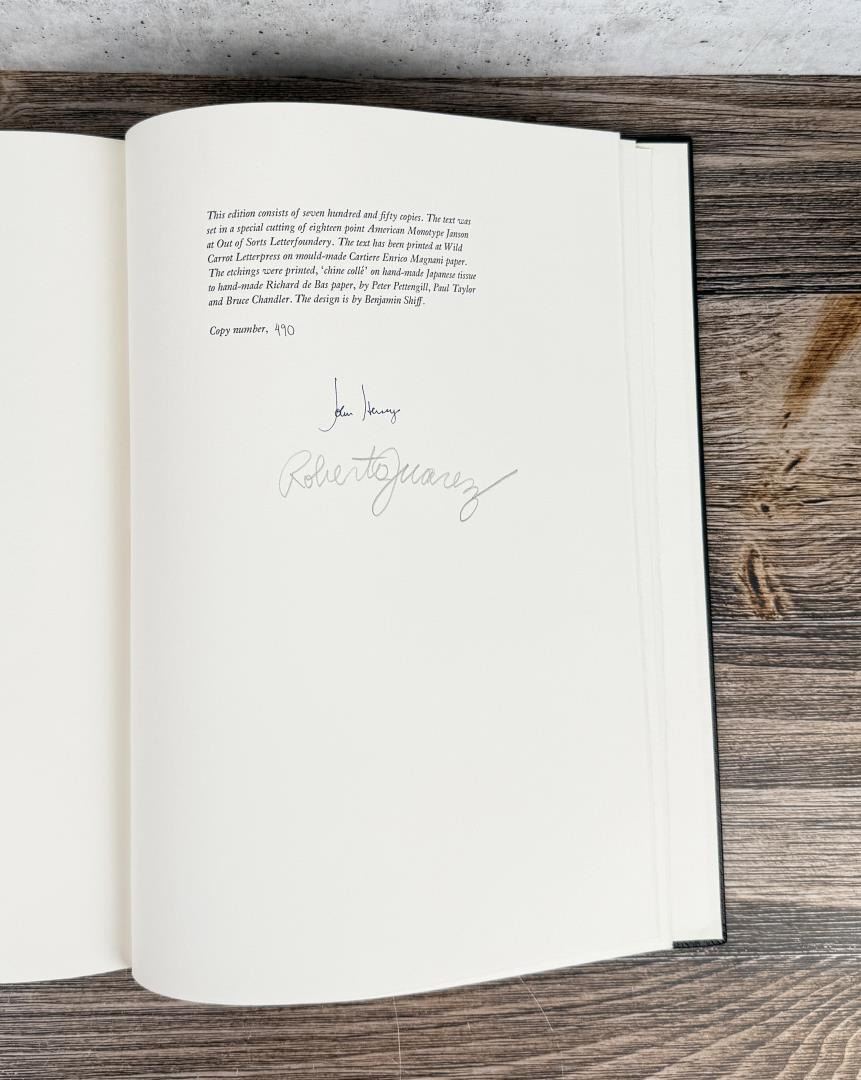 This edition consists of seven hundred and fifty copies. The text was
set in a special cutting of eighteen point American Monotype Janson
at Out of Sorts Letterfoundery. The text has been printed at Wild
Carrot Letterpress on mould-made Cartiere Enrico Magnani paper.
The etchings were printed, ‘chine collé’ on hand-made Japanese tissue
to hand-made Richard de Bas paper, by Peter Pettengill, Paul Taylor
and Bruce Chandler. The design is by Benjamin Shiff.
Copy number, 490
John Hersey
Roberto Juarez